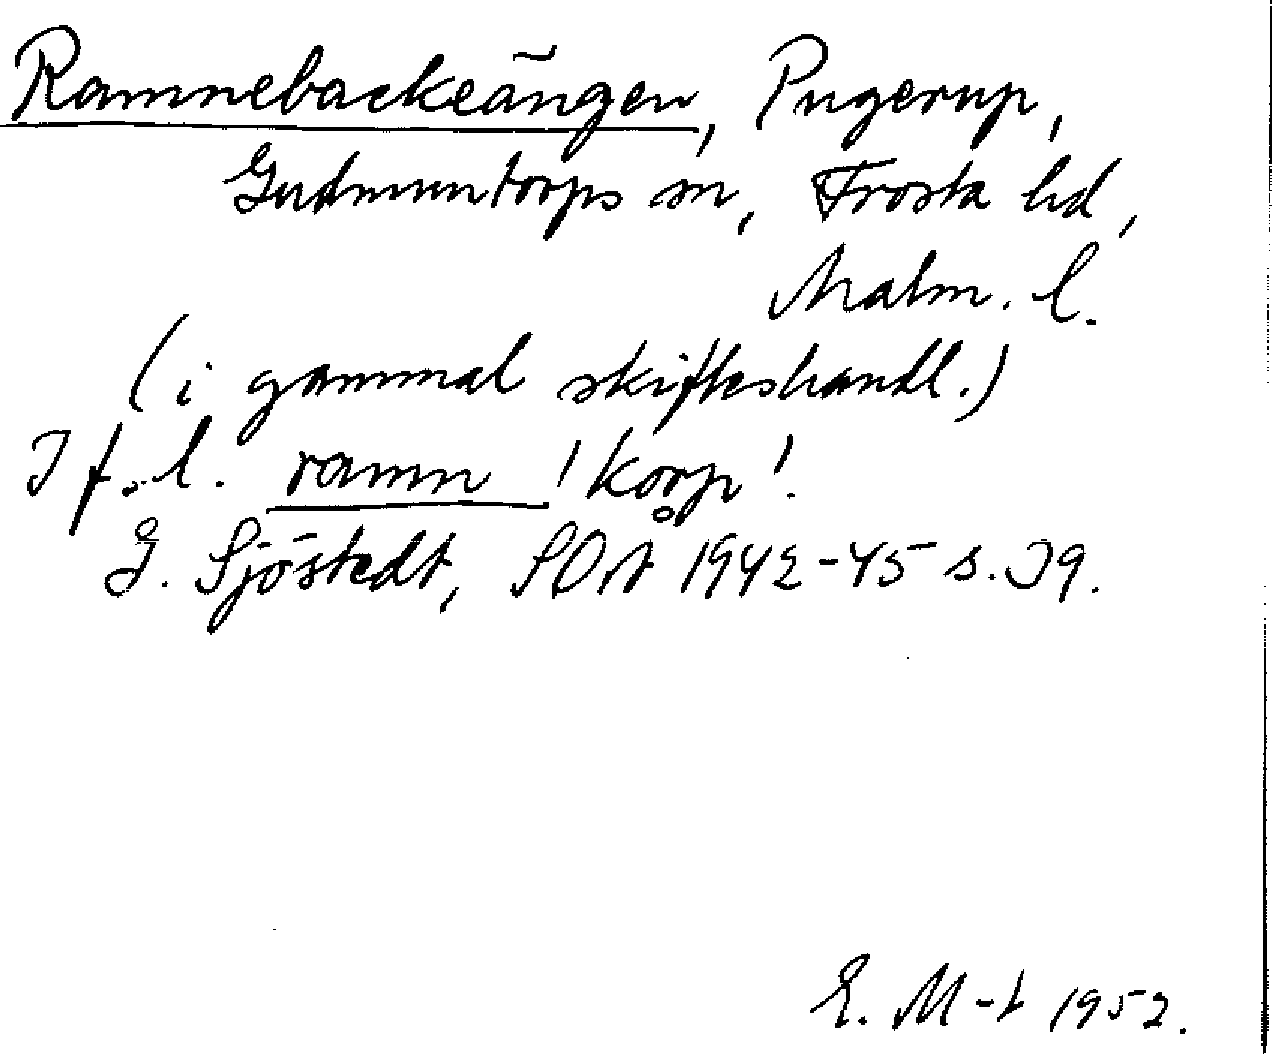 Ramnebackeängen, Pugerup,
Gudmuntorps sn, Frosta hd,
Malm. l.
(i gammal skifteshandl.)
I f. l. ramn 'korp'.
G. Sjöstedt, SOÅ 1942-45 s. 39.
E. M-t 1952.